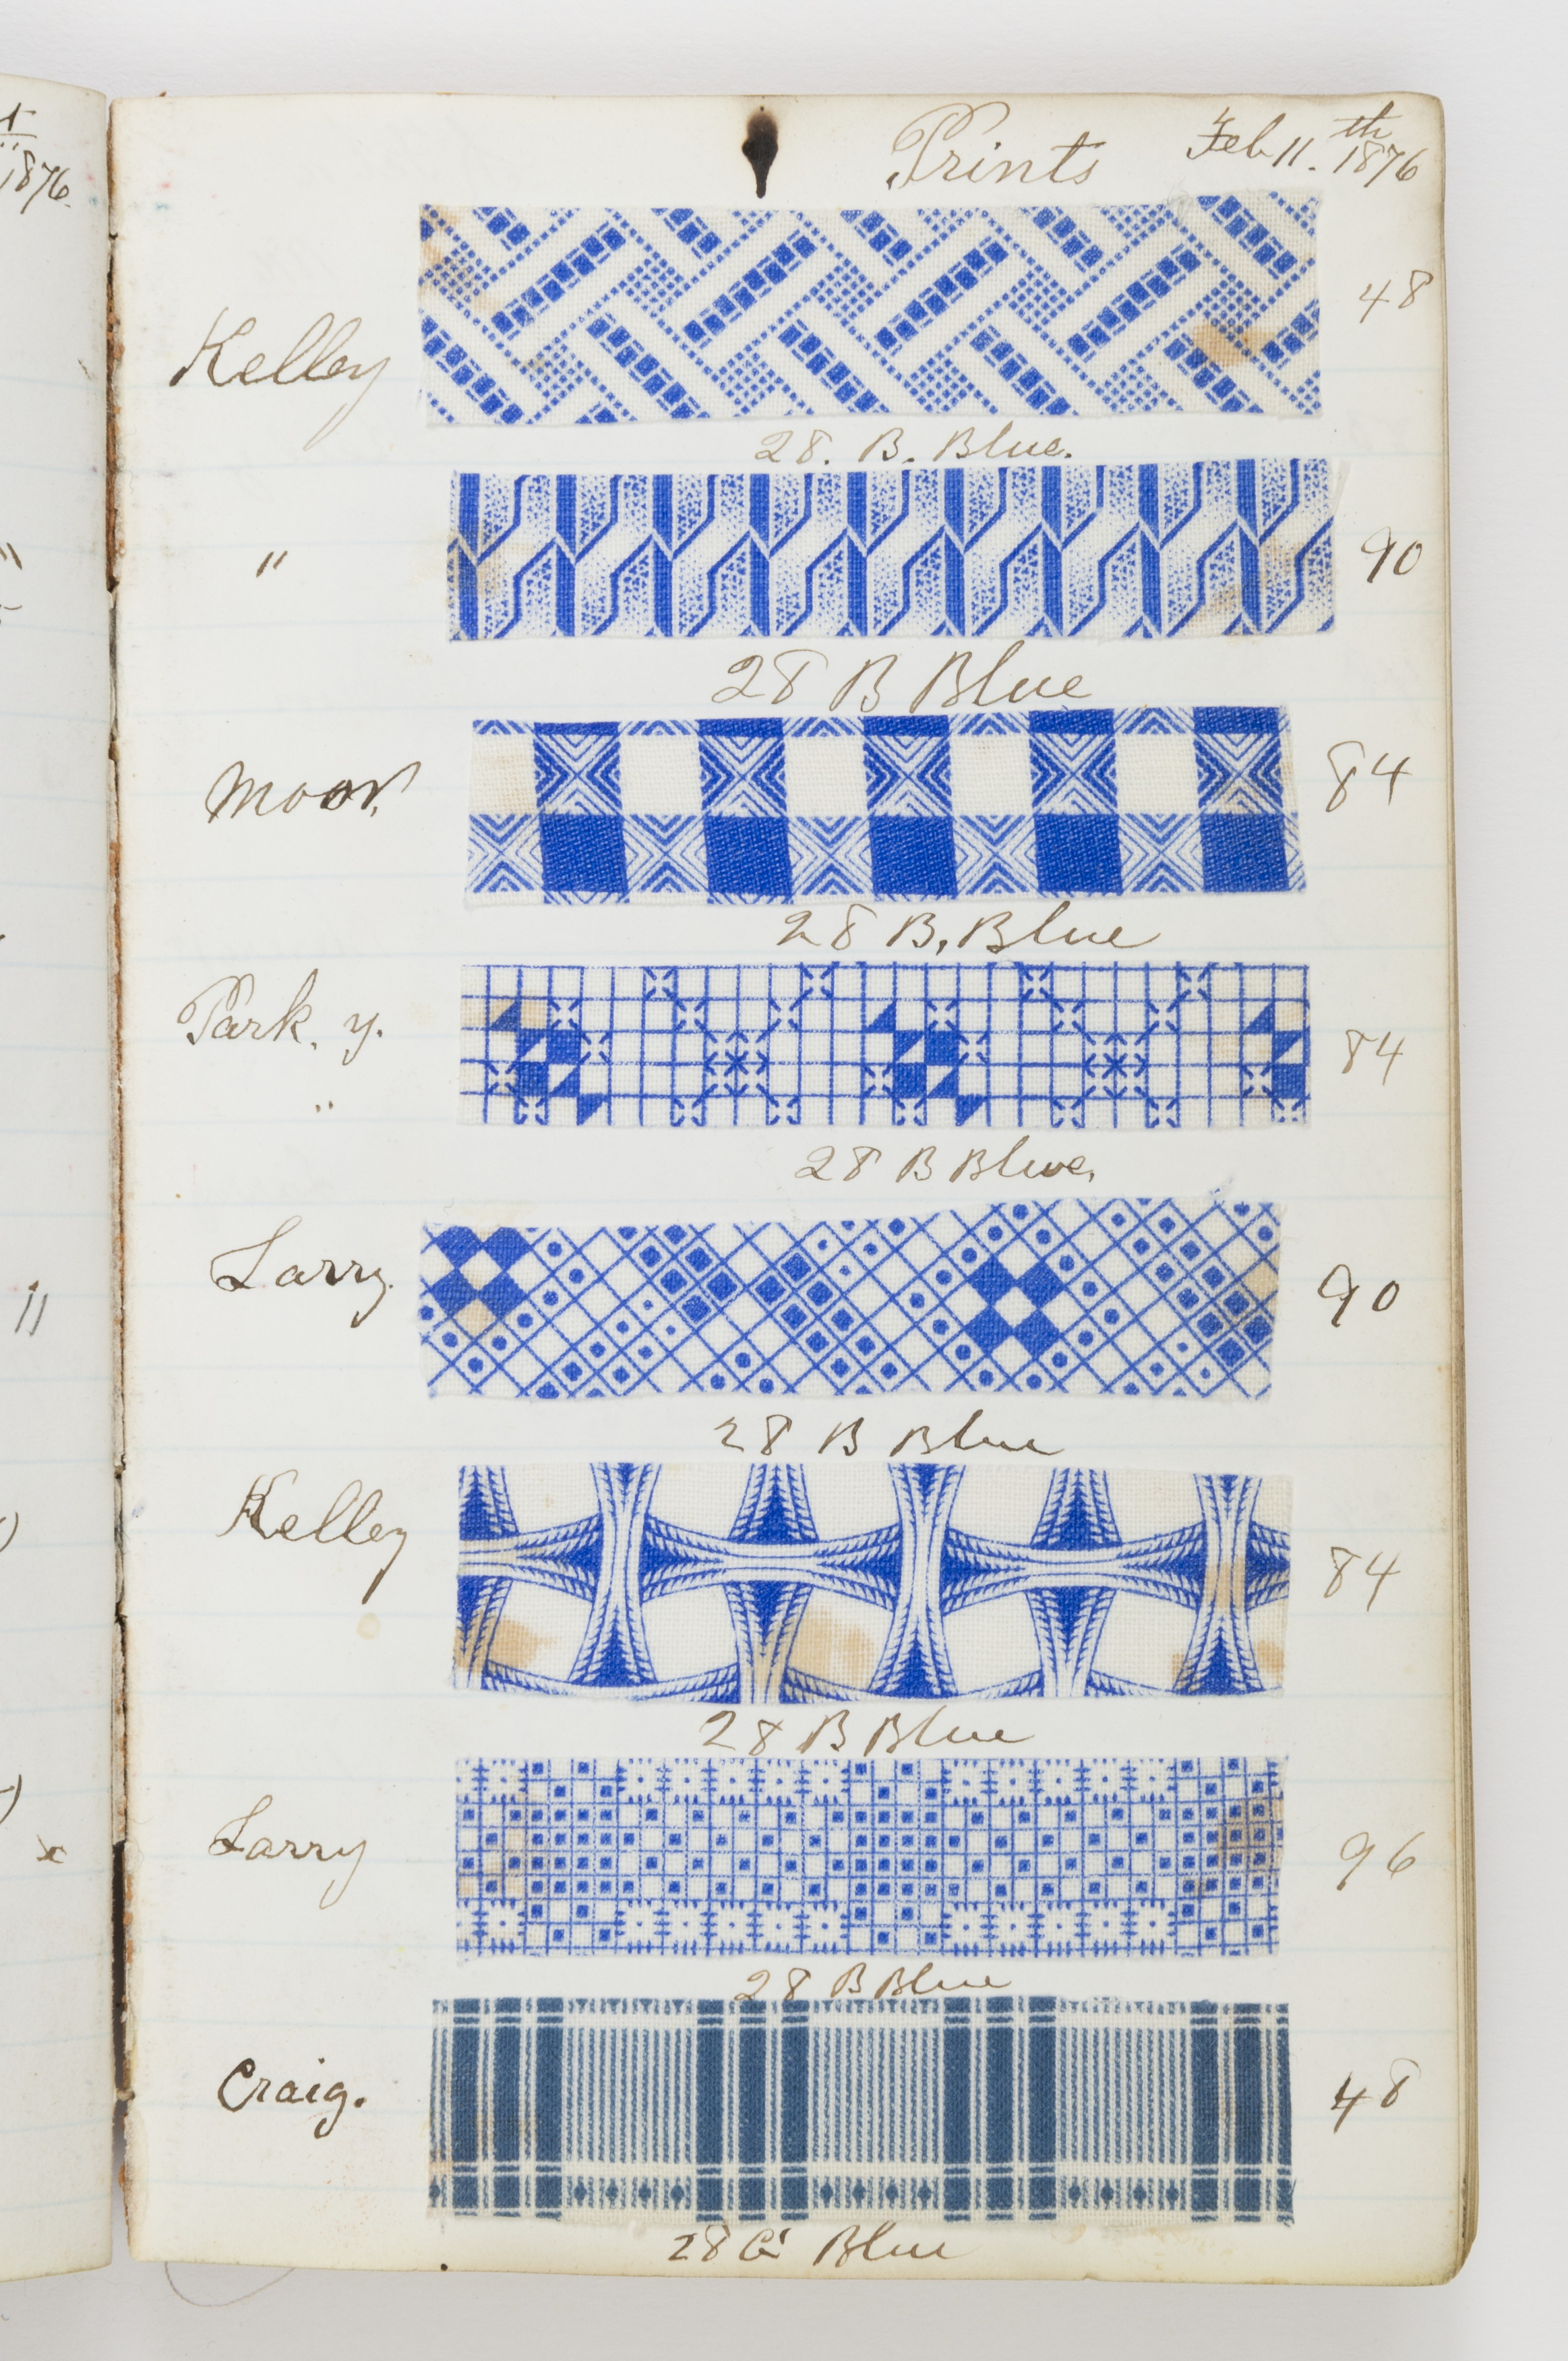 1876.
Prints Feb 11.th 1876
Kelley 48
28. B. Blue.
" 90
28 B Blue
Moor. 84
28 B. Blue
Park. y. 84
"
28 B Blue.
Larry. 90
28 B Blue
Kelley 84
28 B Blue
Larry 96
28 B Blue
Craig. 48
28 G Blue